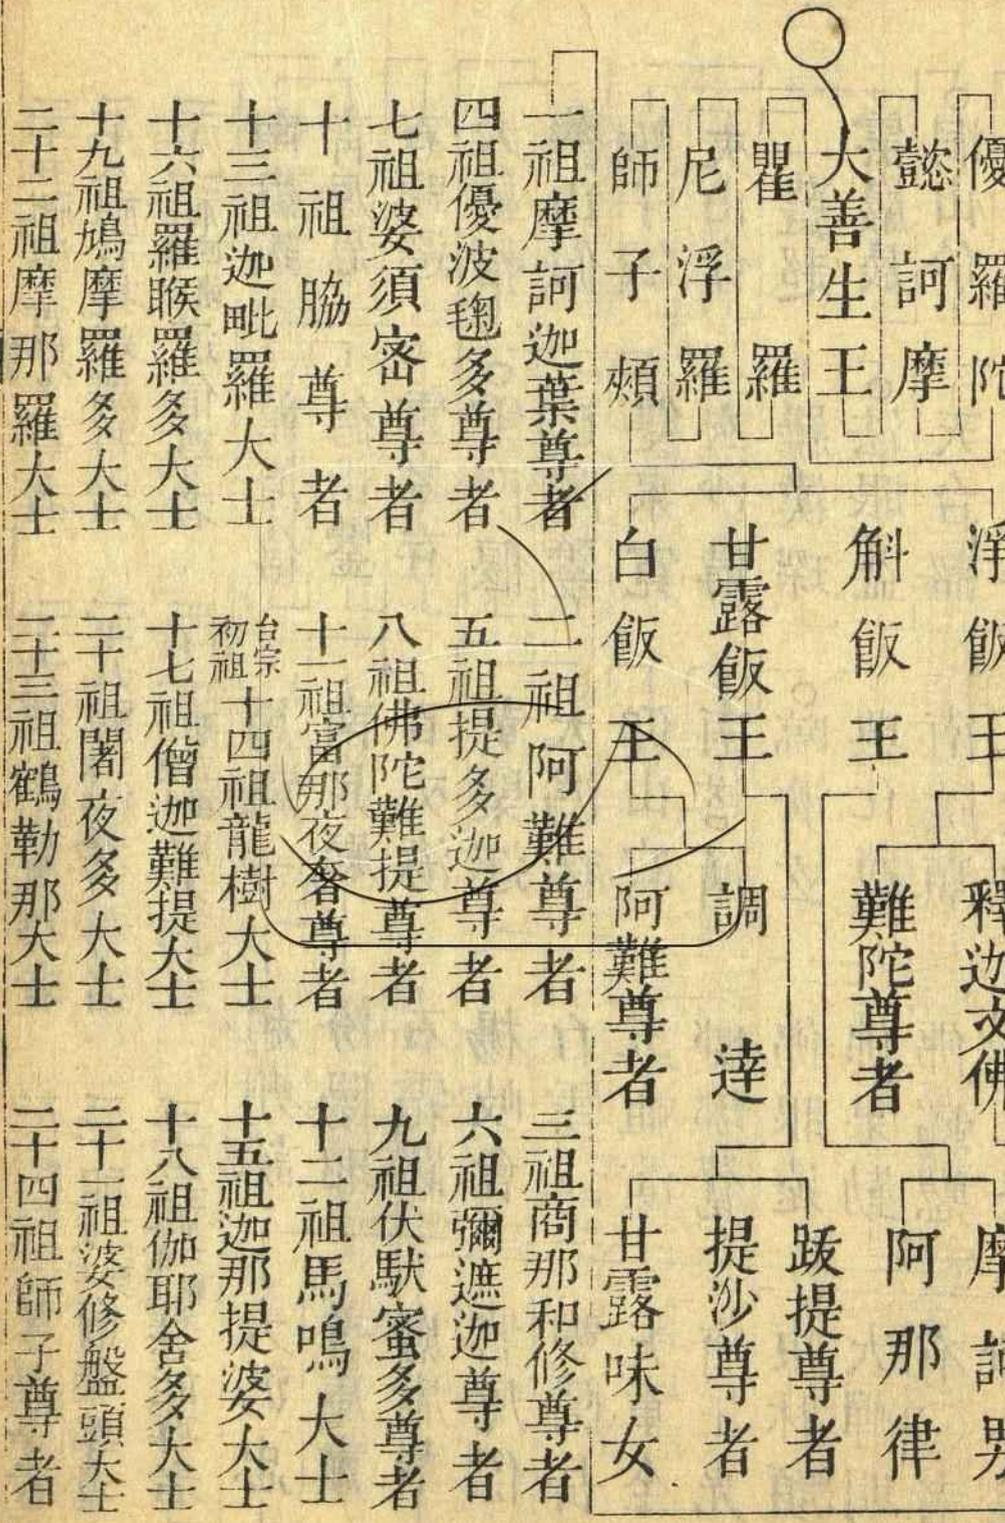 優羅陀
懿訶摩
大善生王
瞿羅
尼浮羅
師子頰
淨飯王
斛飯王
甘露飯王
白飯王
釋迦文佛
難陀尊者
調達
阿難尊者
摩訶男
阿那律
跋提尊者
提沙尊者
甘露味女
一祖摩訶迦葉尊者
二祖阿難尊者
三祖商那和修尊者
四祖優波毱多尊者
五祖提多迦尊者
六祖彌遮迦尊者
七祖婆須密尊者
八祖佛陀難提尊者
九祖伏馱蜜多尊者
十祖脇尊者
十一祖富那夜奢尊者
十二祖馬鳴大士
十三祖迦毗羅大士
台宗初祖十四祖龍樹大士
十五祖迦那提婆大士
十六祖羅睺羅多大士
十七祖僧迦難提大士
十八祖伽耶舍多大士
十九祖鳩摩羅多大士
二十祖闍夜多大士
二十一祖婆修盤頭大士
二十二祖摩那羅大士
二十三祖鶴勒那大士
二十四祖師子尊者